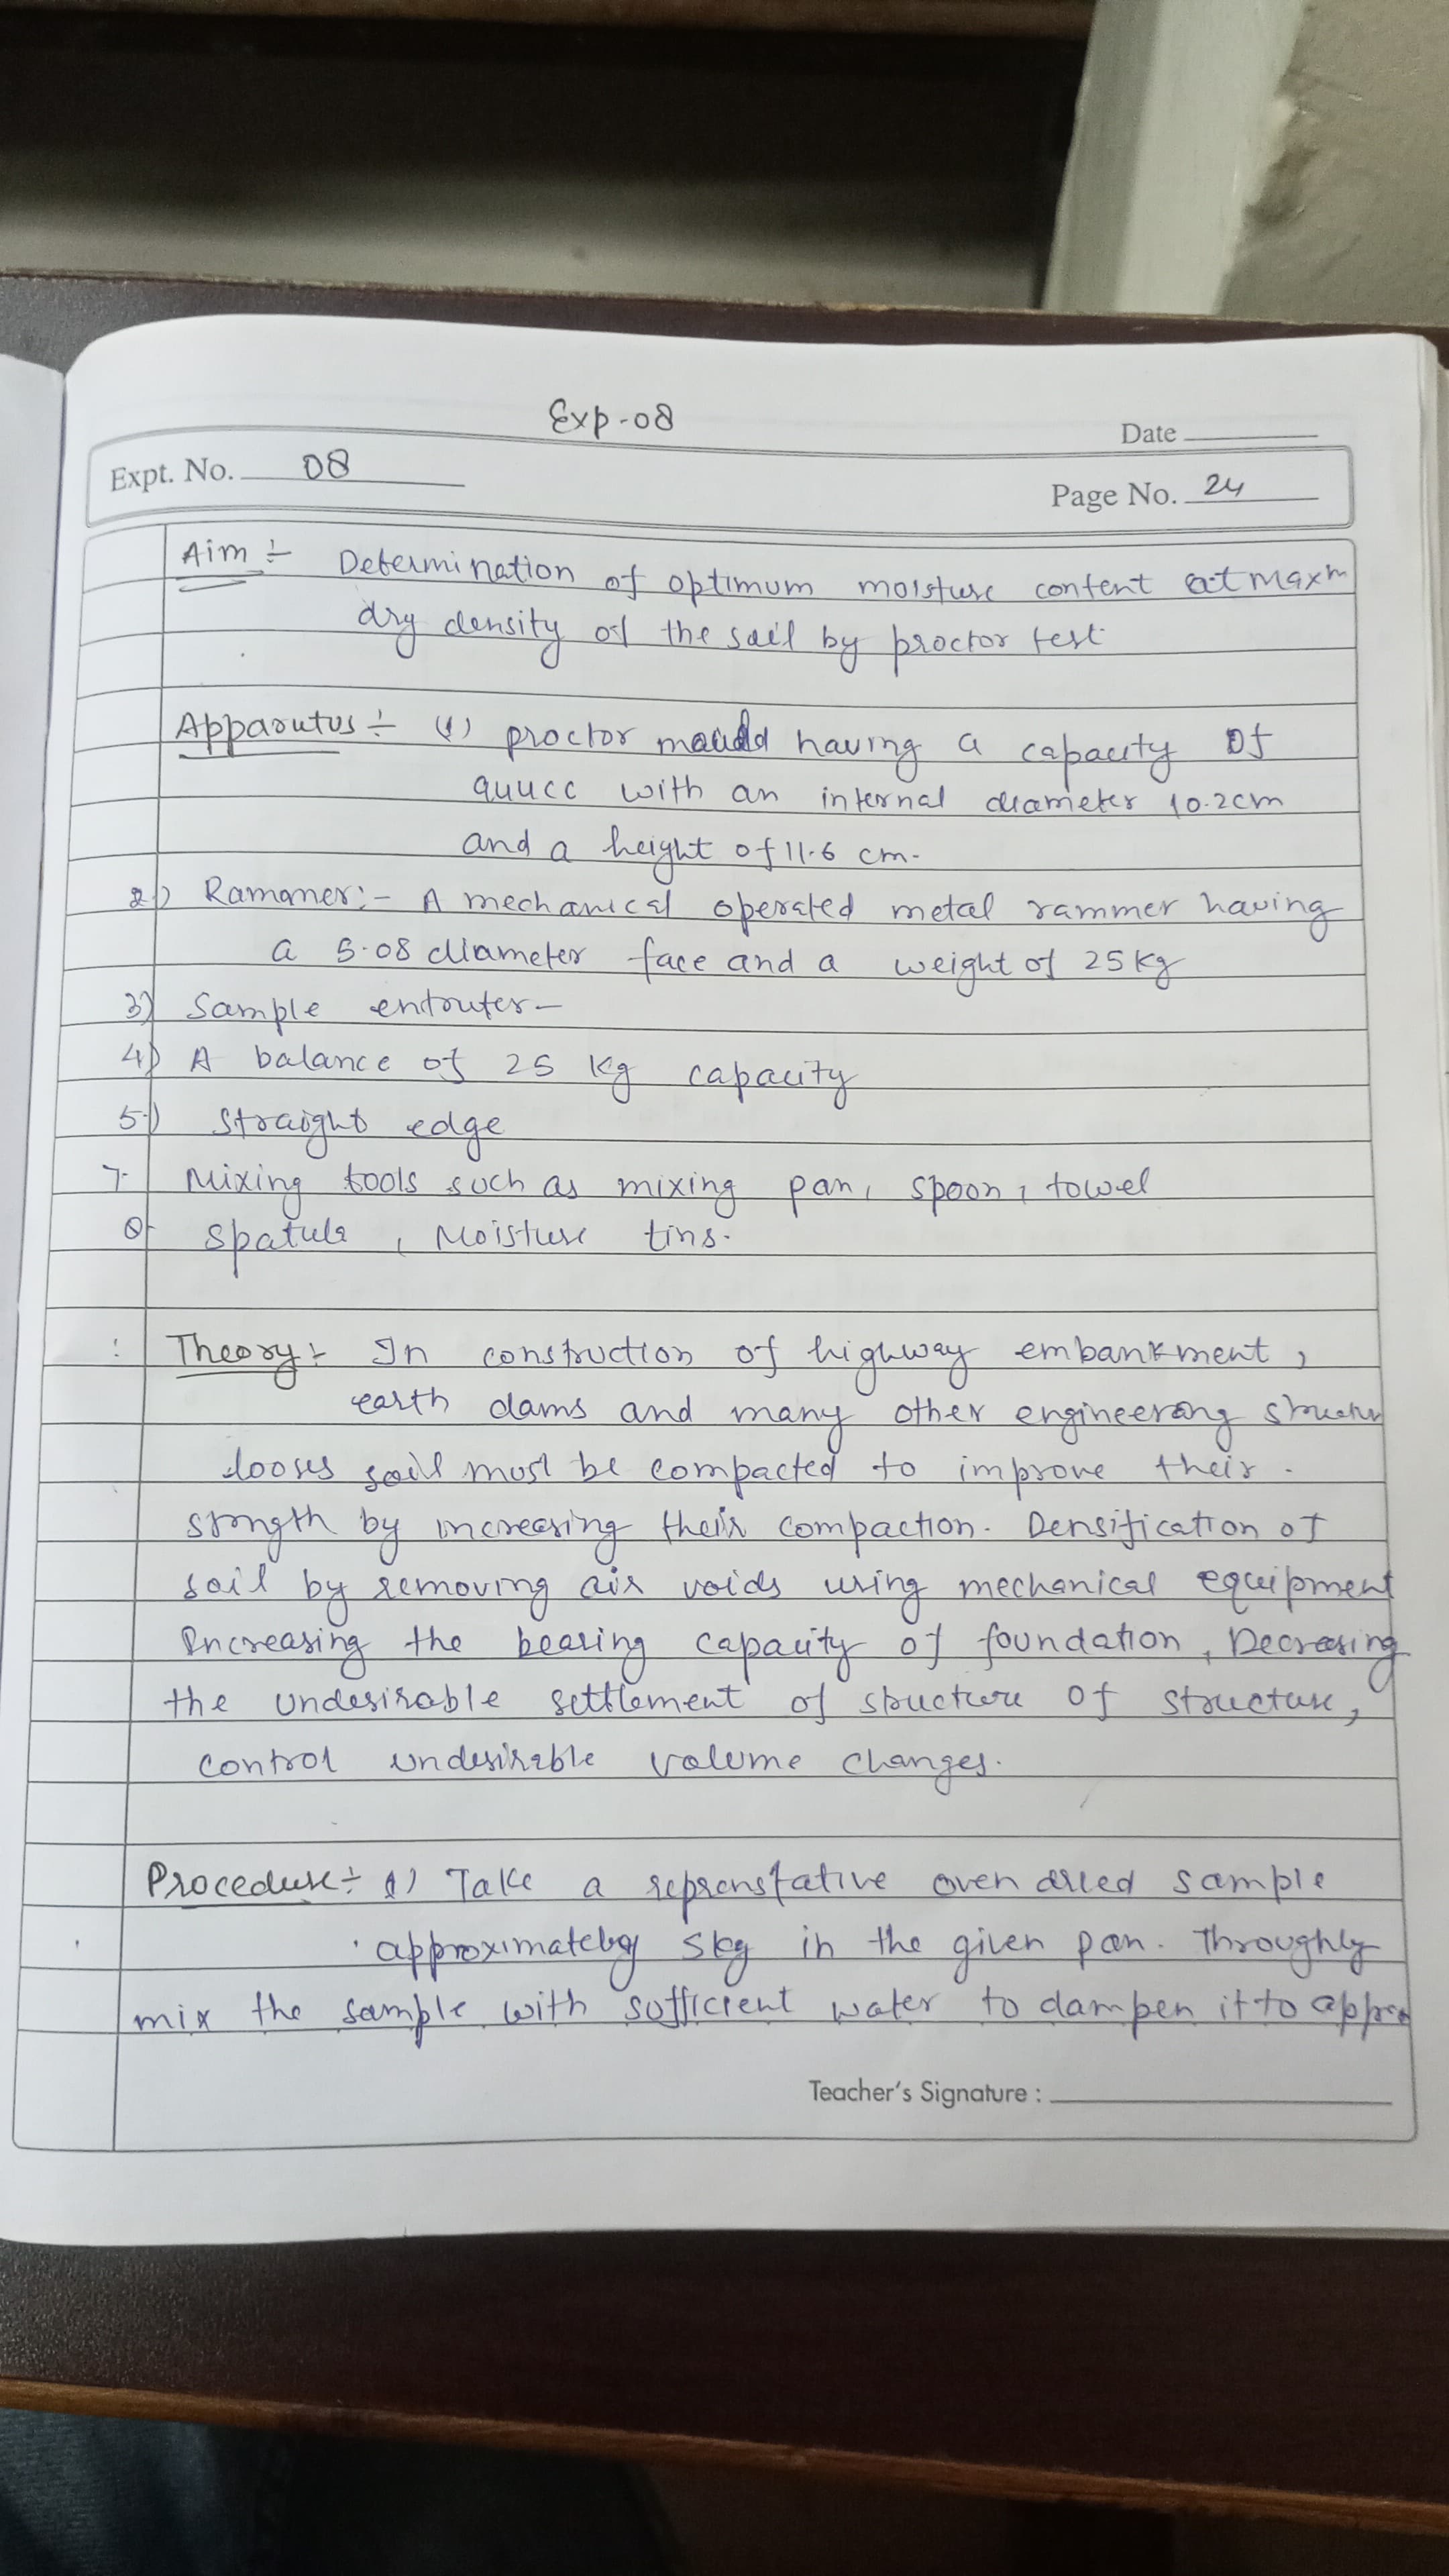 Exp-08
Date
Expt. No. 08
Page No. 24
Aim :- Determination of optimum moisture content at maxm
dry density of the soil by proctor test
Apparutus :- (1) proctor mould having a capacity of
944cc with an internal diameter 10.2cm
and a height of 11.6 cm.
2) Rammer:- A mechanical operated metal rammer having
a 5.08 diameter face and a weight of 25 kg
3) Sample entruter-
4) A balance of 25 kg capacity
5) Straight edge
7. Mixing tools such as mixing pan, spoon, towel
8 spatula, Moisture tins.
Theory:- In construction of highway embankment,
earth dams and many other engineering
looses soil must be compacted to improve their.
strongth by increasing their compaction. Densification of
soil by removing air voids using mechanical equipment
Increasing the bearing capacity of foundation, Decreasing
the undesirable settlement of structure of structure,
control undesirable volume changes.
Procedure :- 1) Take a reprenstative oven dried sample
approximately 5kg in the given pan. Throughly
mix the sample with sufficient water to dampen it to appro
Teacher's Signature :